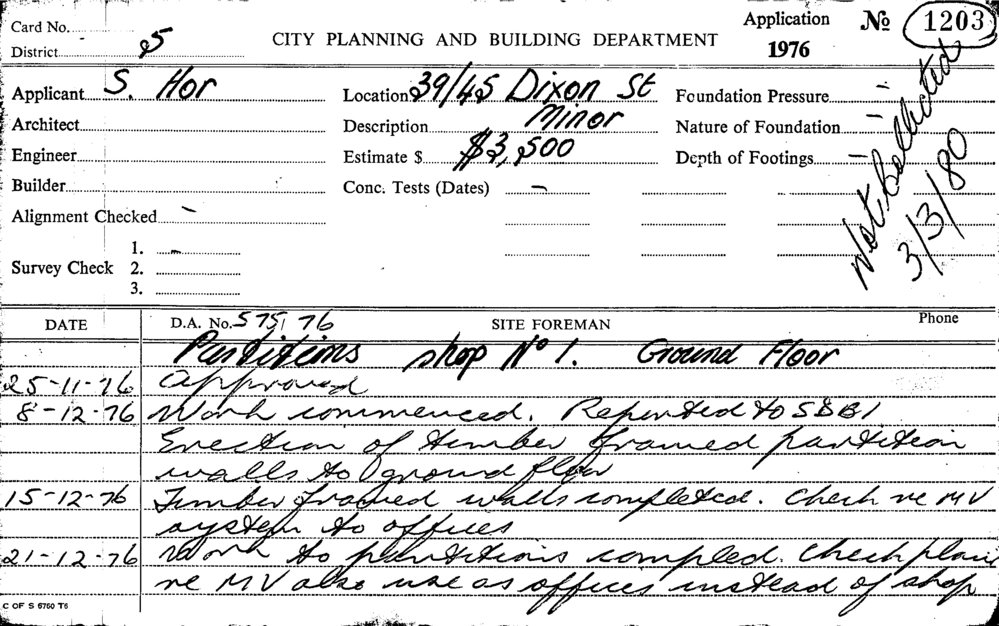 Card No.
District 25
CITY PLANNING AND BUILDING DEPARTMENT
Application
1976
No 1203
Applicant S. Hor
Location 39/45 Dixon St
Foundation Pressure –
Architect
Description Minor
Nature of Foundation –
Engineer
Estimate $ $3,500
Depth of Footings –
Builder
Conc. Tests (Dates) –
Alignment Checked –
Survey Check
1. –
2.
3.
Not Collected
3/3/80
DATE
D.A. No. 575/76
SITE FOREMAN
Phone
Partitions shop No 1. Ground Floor
25-11-76 Approved
8-12-76 Work commenced. Reported to SDBI
Erection of timber framed partition
walls to ground floor
15-12-76 Timber framed walls completed. Check re MV
system to offices
21-12-76 Work to partitions compled. Check plans
re MV also use as offices instead of shop
C OF S 6750 T6